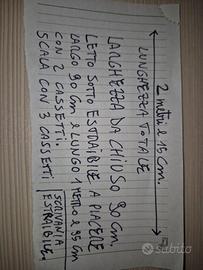 2 metri e 15 cm.
LUNGHEZZA TOTALE
LARGHEZZA DA CHIUSO 90 cm
LETTO SOTTO ESTRAIBILE A PIACERE
LARGO 90 cm E LUNGO 1 METRO E 95 cm
CON 2 CASSETTI.
SCALA CON 3 CASSETTI
SCRIVANIA
ESTRAIBILE
subito